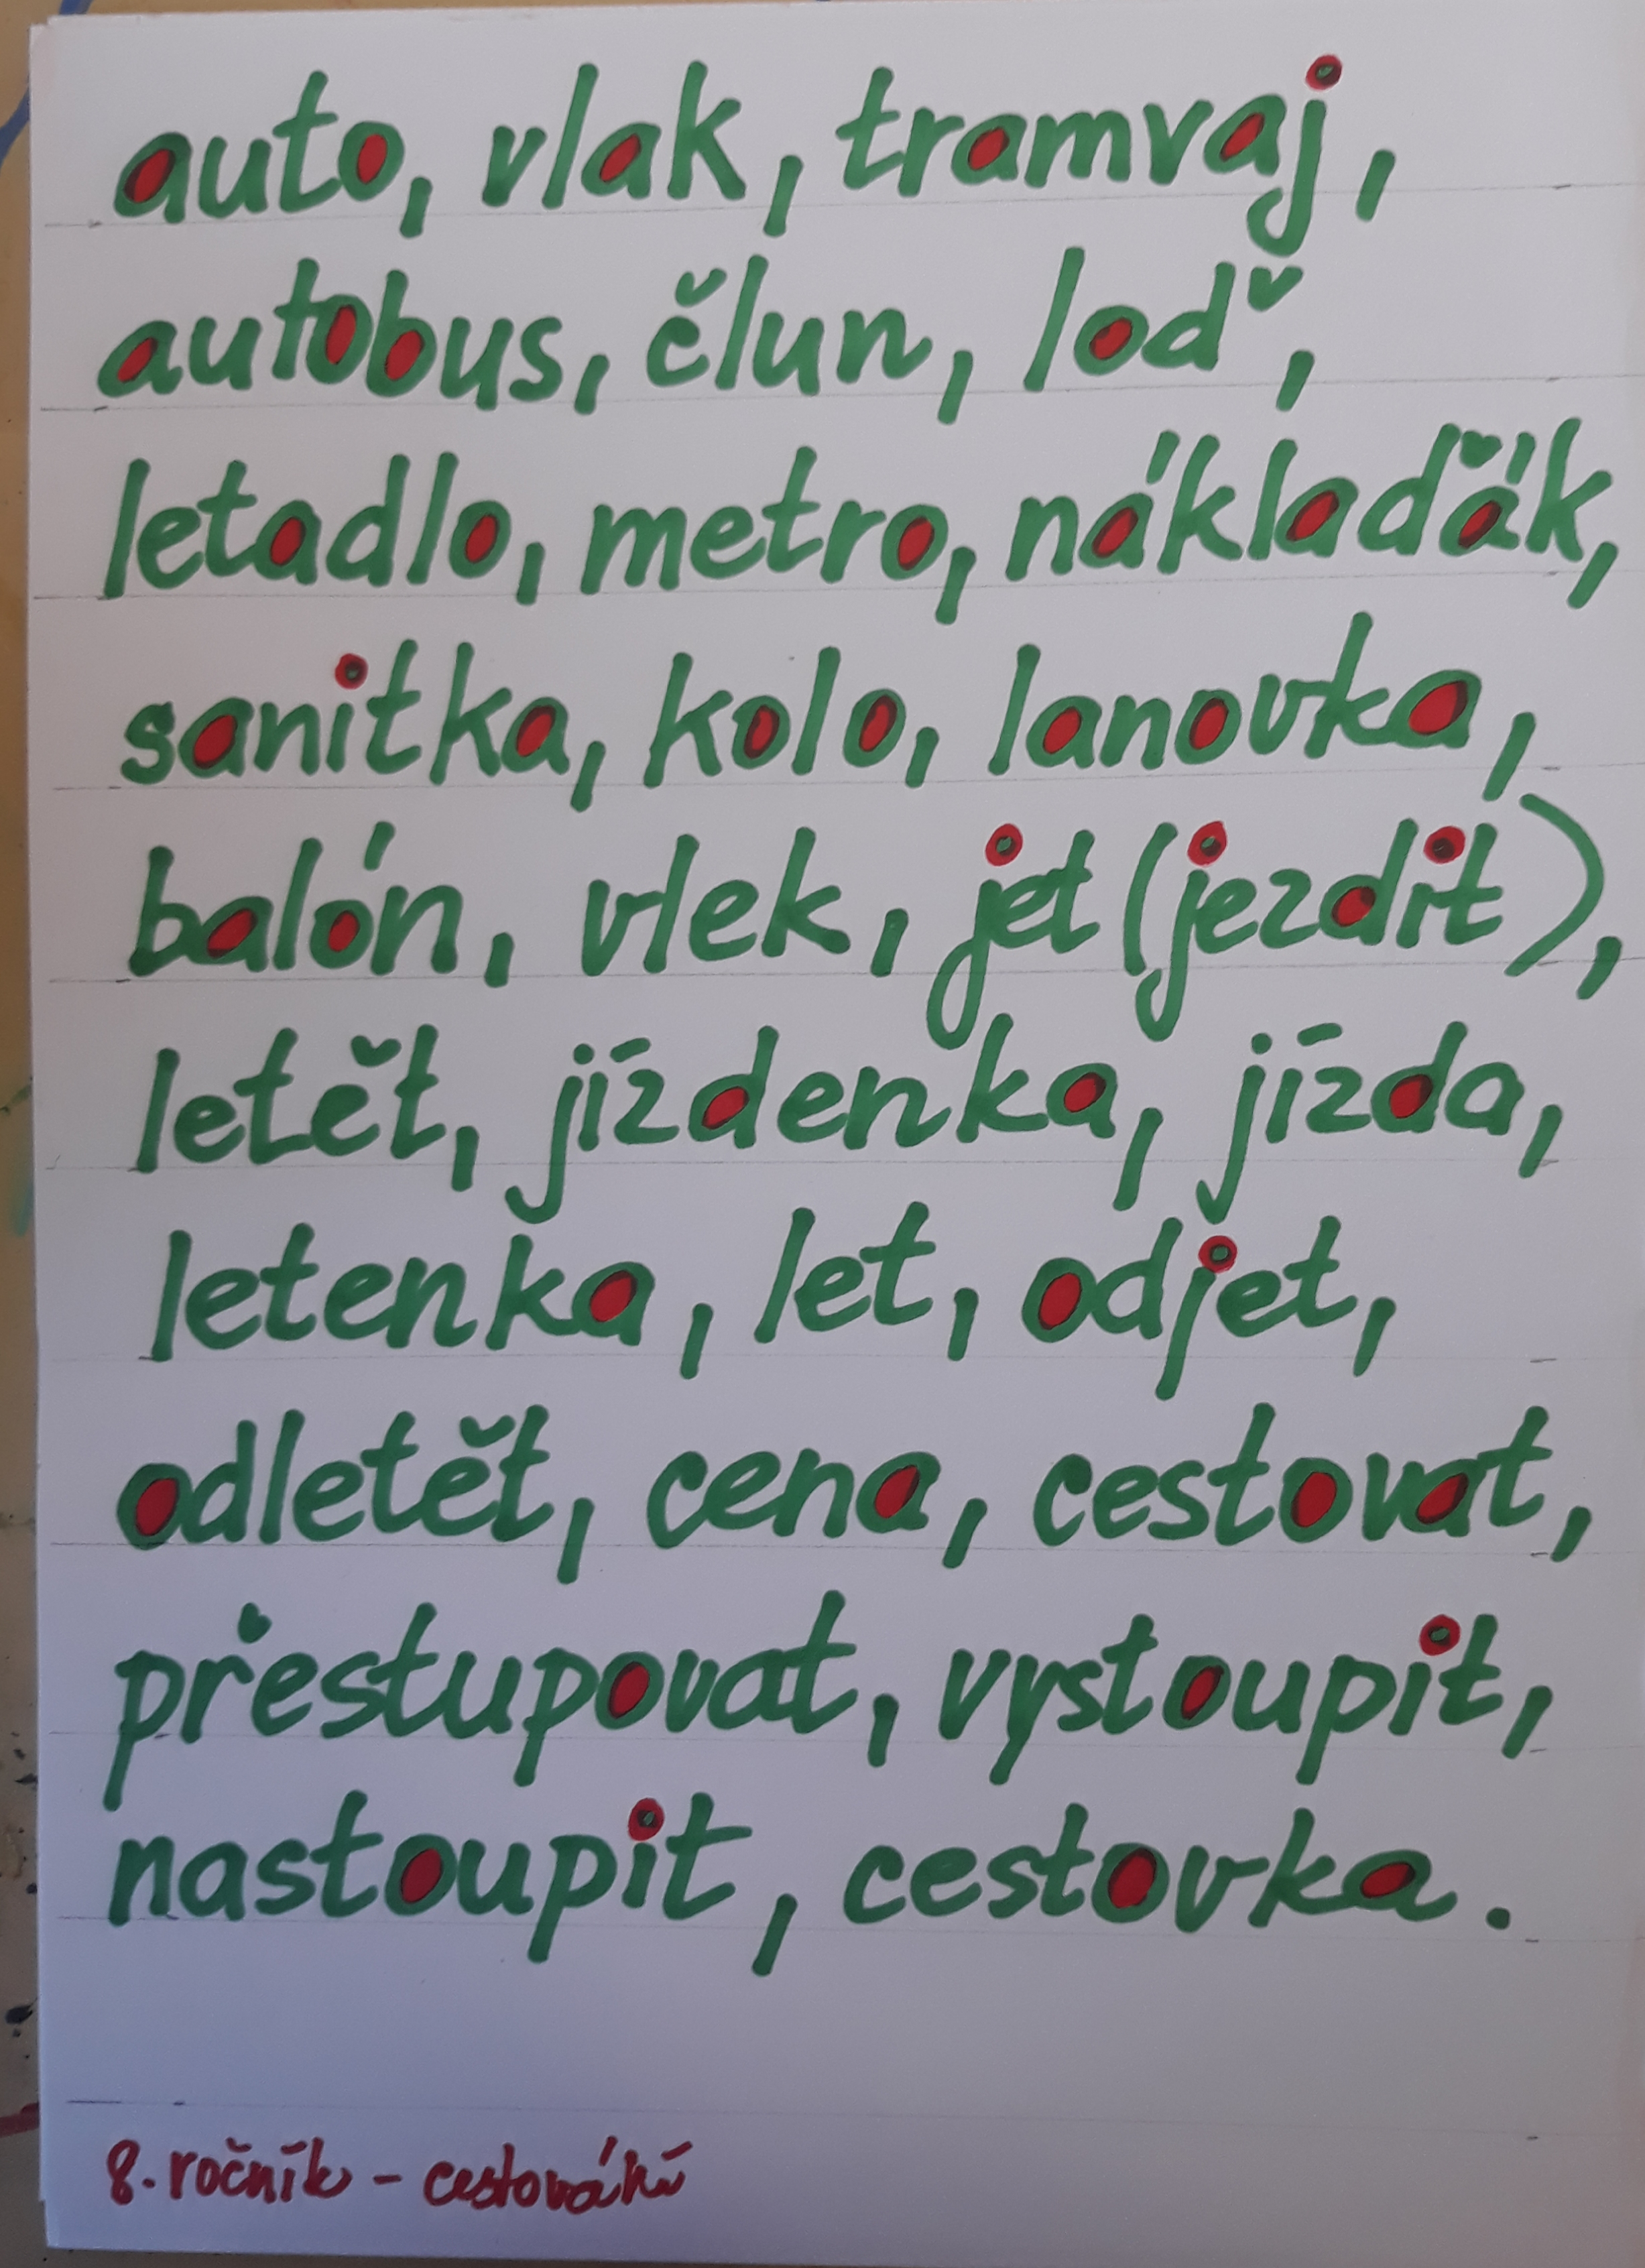 auto, vlak, tramvaj,
autobus, člun, loď,
letadlo, metro, náklaďák,
sanitka, kolo, lanovka,
balón, vlek, jet (jezdit),
letět, jízdenka, jízda,
letenka, let, odjet,
odletět, cena, cestovat,
přestupovat, vystoupit,
nastoupit, cestovka.
8. ročník - cestování